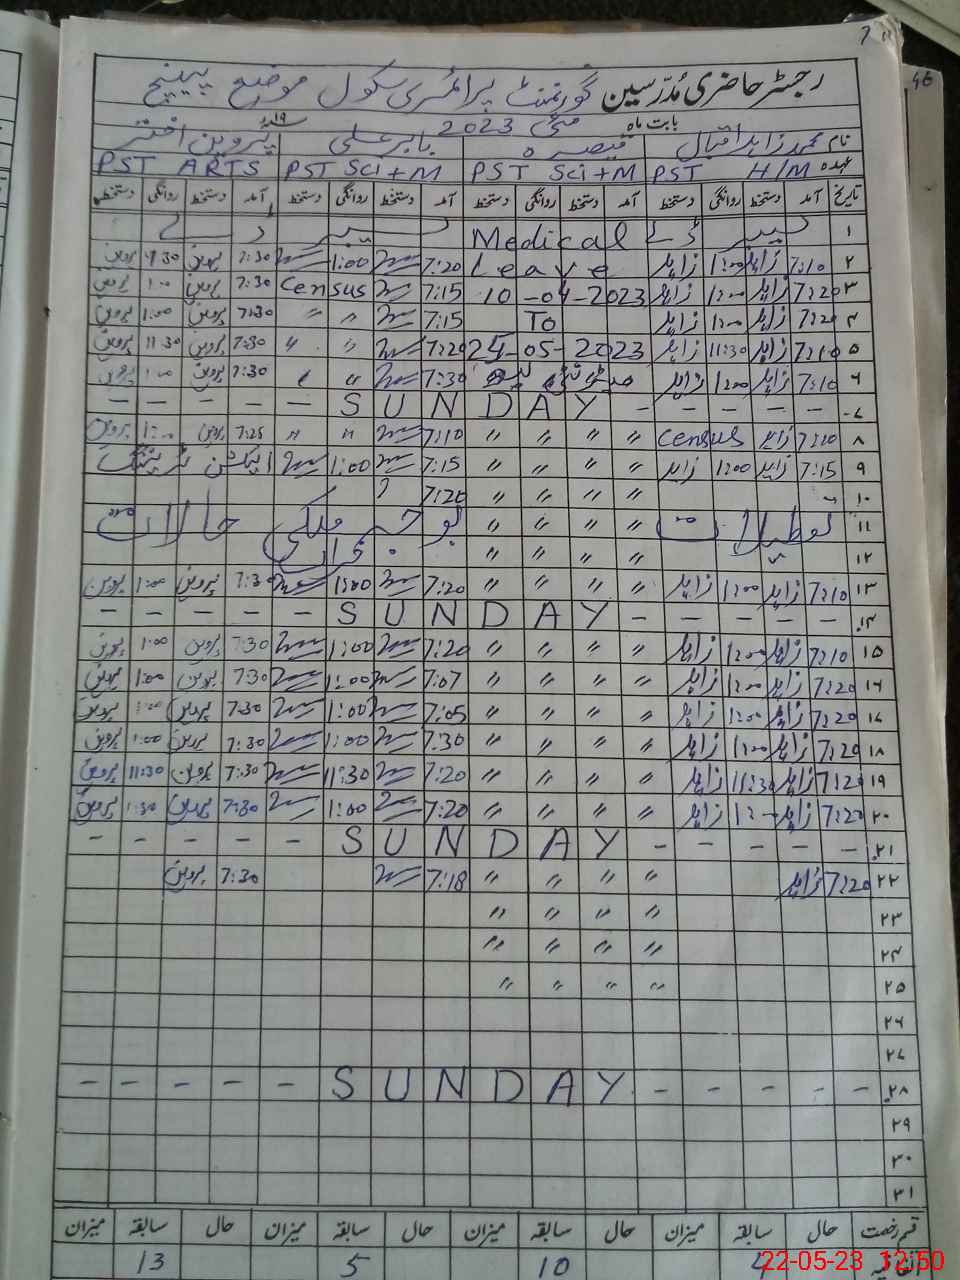 46
رجسٹر حاضری مُدرسین گورنمنٹ پرائمری سکول موضع
بابت ماہ مئی 2023
نام محمد زاہد اقبال قیصرہ بابر علی پروین اختر
عہدہ PST H/M PST Sci+M PST Sci+M PST ARTS
تاریخ آمد دستخط روانگی دستخط آمد دستخط روانگی دستخط آمد دستخط روانگی دستخط آمد دستخط روانگی دستخط
۱ لیبر ڈے Medical لیبر ڈے
۲ 7:10 زاہد 1:00 زاہد Leave 7:20 1:00 7:30 پروین پروین
۳ 7:20 زاہد 1:00 زاہد 10-04-2023 7:15 Census 7:30 پروین 1:00 پروین
۴ 7:20 زاہد 1:00 زاہد To 7:15 " " 7:30 پروین 1:00 پروین
۵ 7:10 زاہد 11:30 زاہد 25-05-2023 7:20 " " 7:30 پروین 11:30 پروین
۶ 7:10 زاہد 1:00 زاہد 7:30 " " 7:30 پروین 1:00 پروین
۷ - - - - SUNDAY - - - - -
۸ 7:10 زاہد Census " " " " 7:10 " " 7:25 پروین 1:00 پروین
۹ 7:15 زاہد 1:00 زاہد " " " " 7:15 1:00 الیکشن ٹریننگ
۱۰ " " " " 7:20
۱۱ تعطیلات " " " " بوجہ ملکی حالات
۱۲ " " " "
۱۳ 7:10 زاہد 1:00 زاہد " " " " 7:20 1:00 7:30 پروین 1:00 پروین
۱۴ - - - - SUNDAY - - - - -
۱۵ 7:10 زاہد 1:00 زاہد " " " " 7:20 1:00 7:30 پروین 1:00 پروین
۱۶ 7:20 زاہد 1:00 زاہد " " " " 7:07 1:00 7:30 پروین 1:00 پروین
۱۷ 7:20 زاہد 1:00 زاہد " " " " 7:05 1:00 7:30 پروین 1:00 پروین
۱۸ 7:20 زاہد 1:00 زاہد " " " " 7:30 1:00 7:30 پروین 1:00 پروین
۱۹ 7:20 زاہد 11:30 زاہد " " " " 7:20 11:30 7:30 پروین 11:30 پروین
۲۰ 7:20 زاہد 1:00 زاہد " " " " 7:20 1:00 7:30 پروین 1:30 پروین
۲۱ - - - - - SUNDAY - - - - -
۲۲ 7:20 زاہد " " " " 7:18 7:30 پروین
۲۳ " " " "
۲۴ " " " "
۲۵ " " " "
۲۶
۲۷
۲۸ - - - - SUNDAY - - - - -
۲۹
۳۰
۳۱
قسم رخصت حال سابقہ میزان حال سابقہ میزان حال سابقہ میزان حال سابقہ میزان
10 5 13
22-05-23 12:50